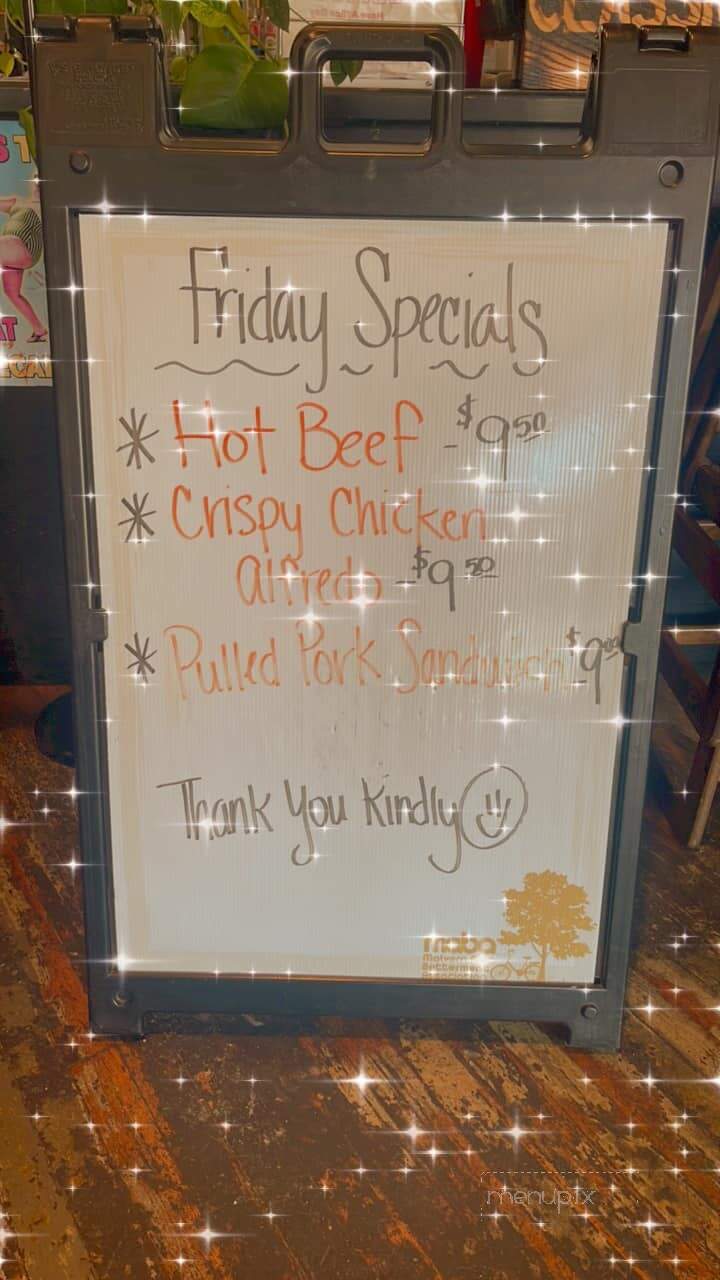 Friday Specials
* Hot Beef - $9.50
* Crispy Chicken
Alfredo - $9.50
* Pulled Pork Sandwich $9.00
Thank You Kindly
maba
Malvern
Betterment
Association
menupix